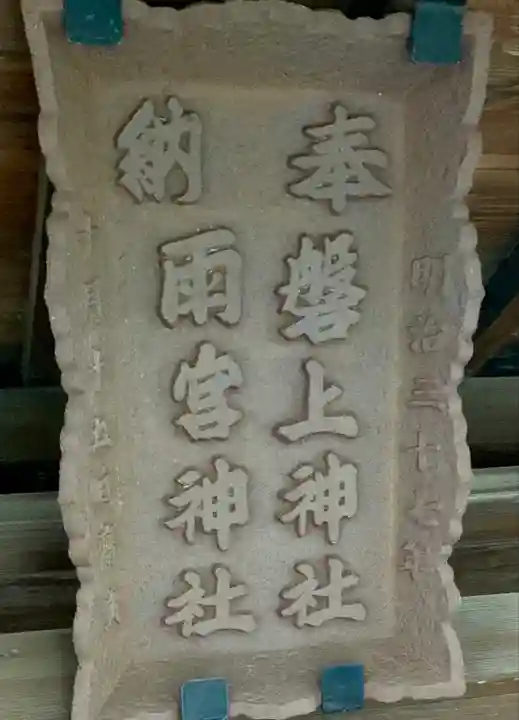 明治三十七年
奉
磐上神社
納
雨宮神社